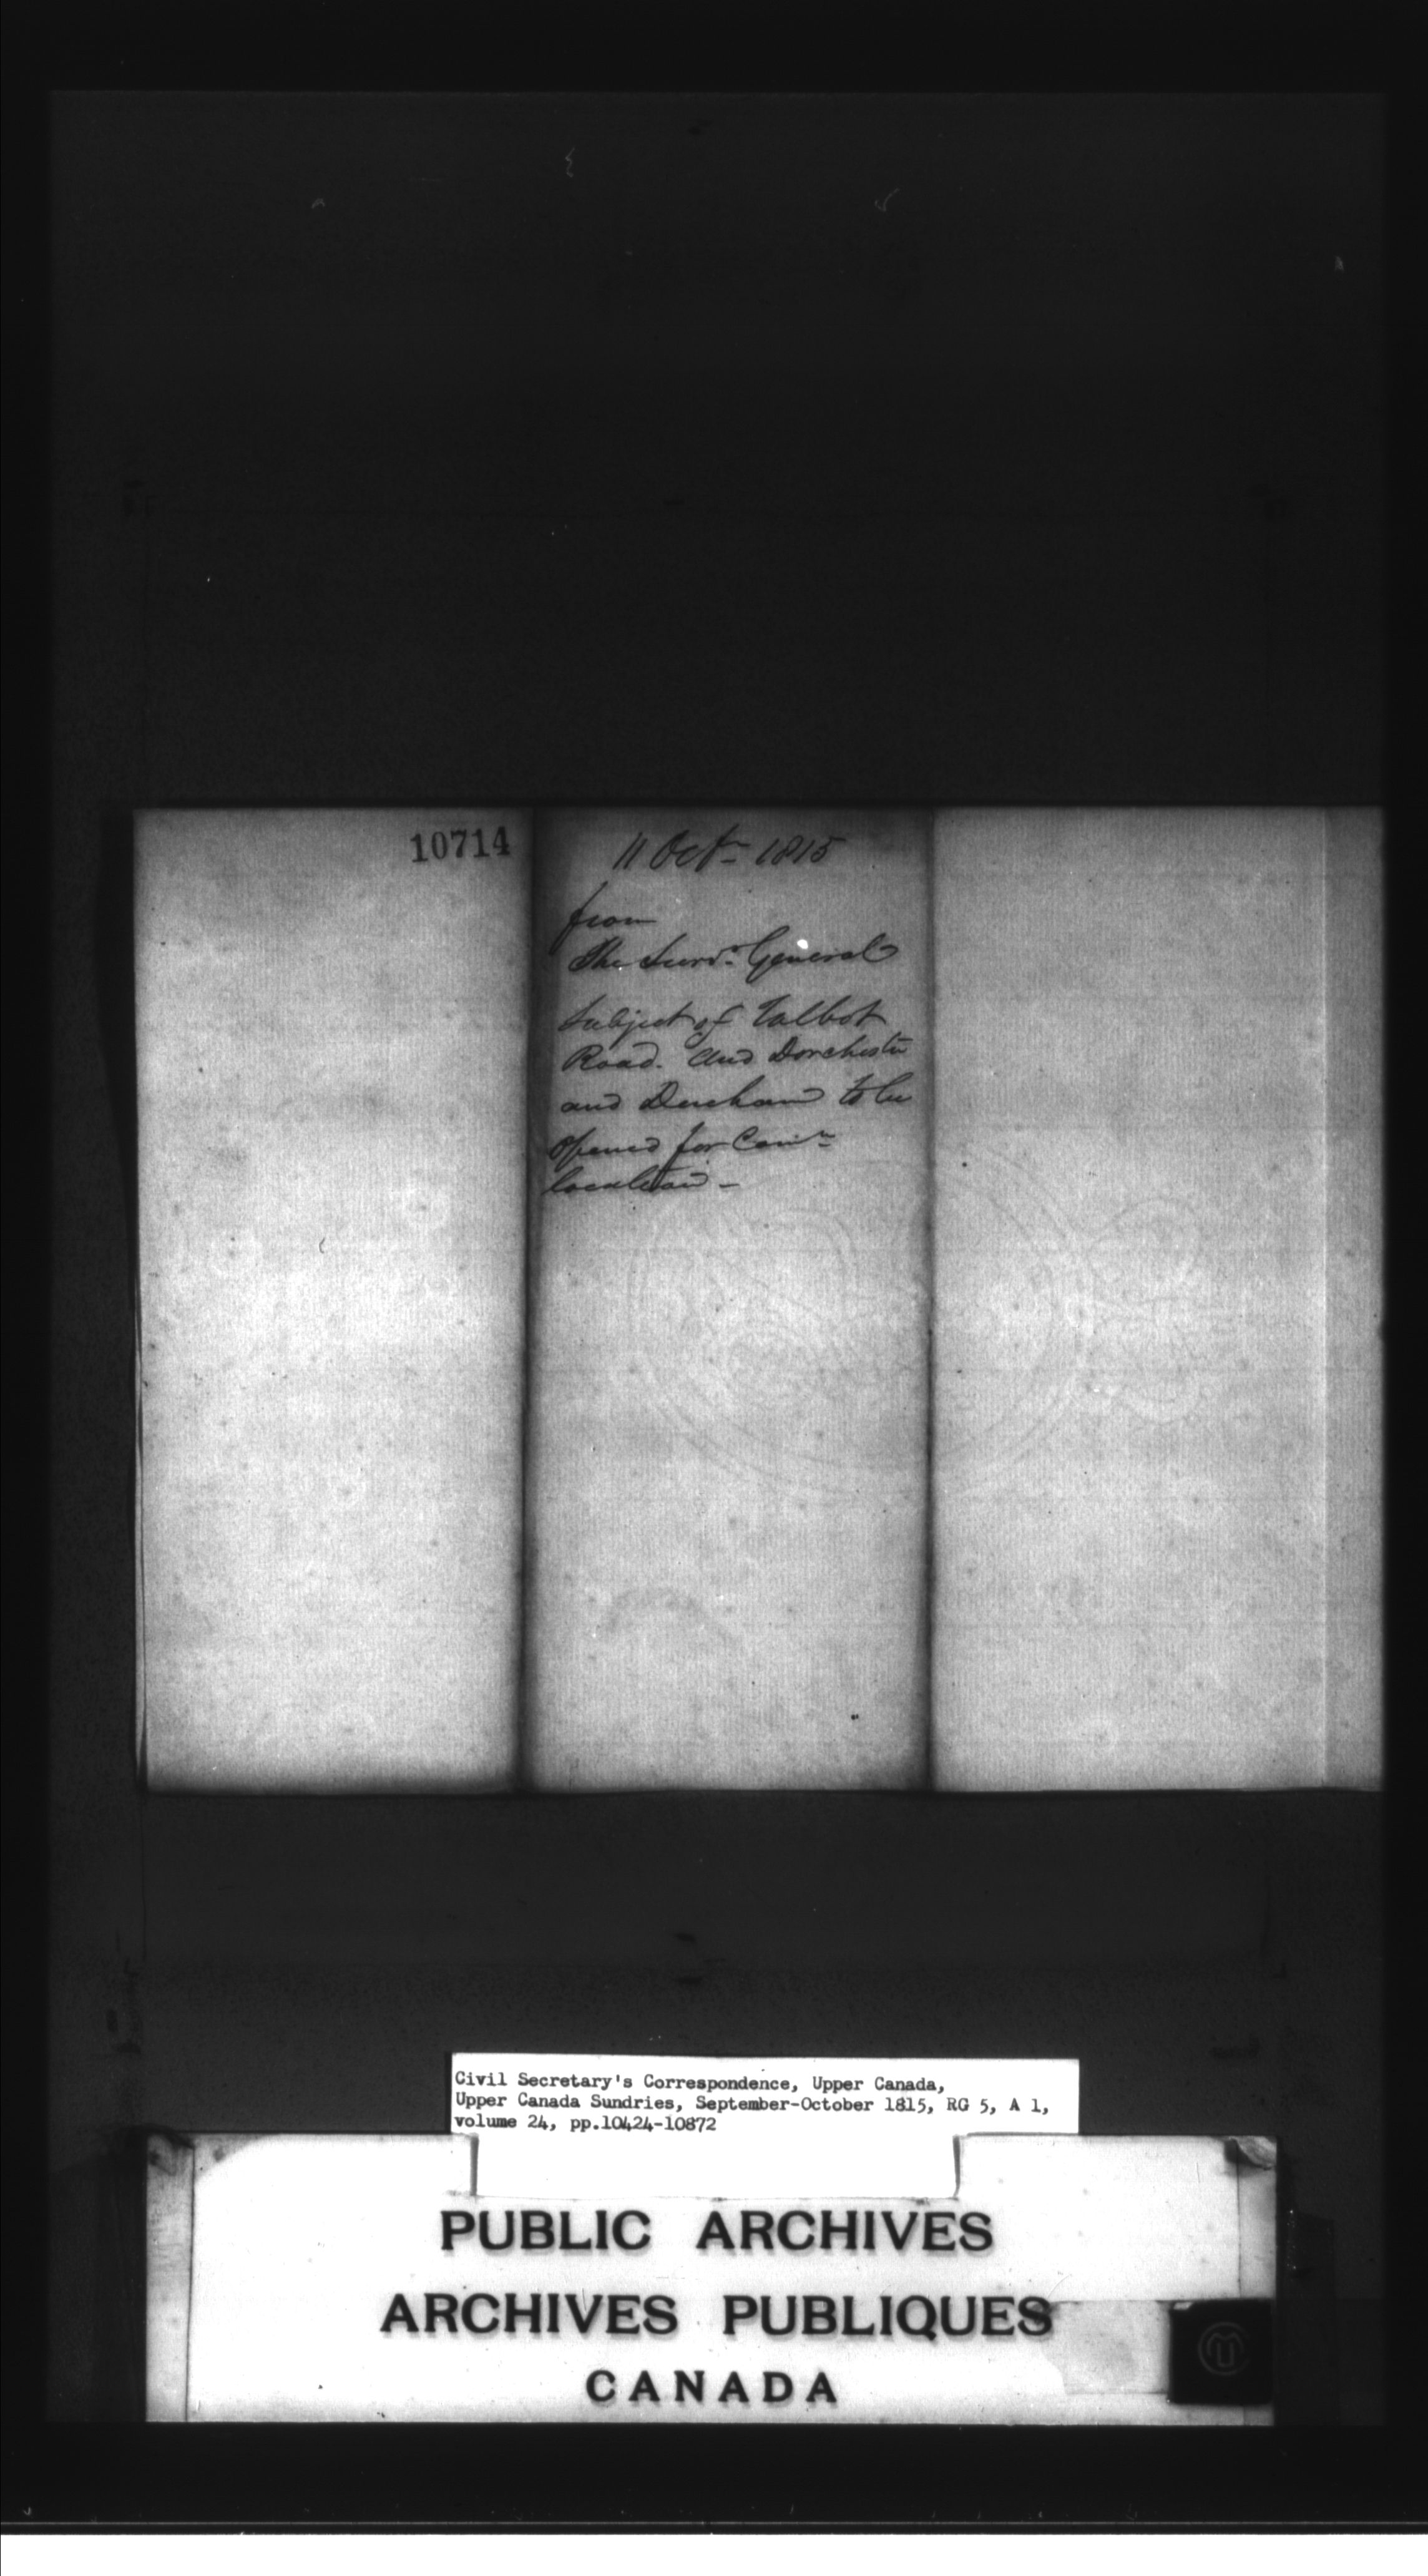 10714
11 Octr 1815
from
The Survr General
Subject of Talbot
Road. And Dorchester
and Dereham to be
opened for
location -
Civil Secretary's Correspondence, Upper Canada,
Upper Canada Sundries, September-October 1815, RG 5, A 1,
volume 24, pp.10424-10872
PUBLIC ARCHIVES
ARCHIVES PUBLIQUES
CANADA